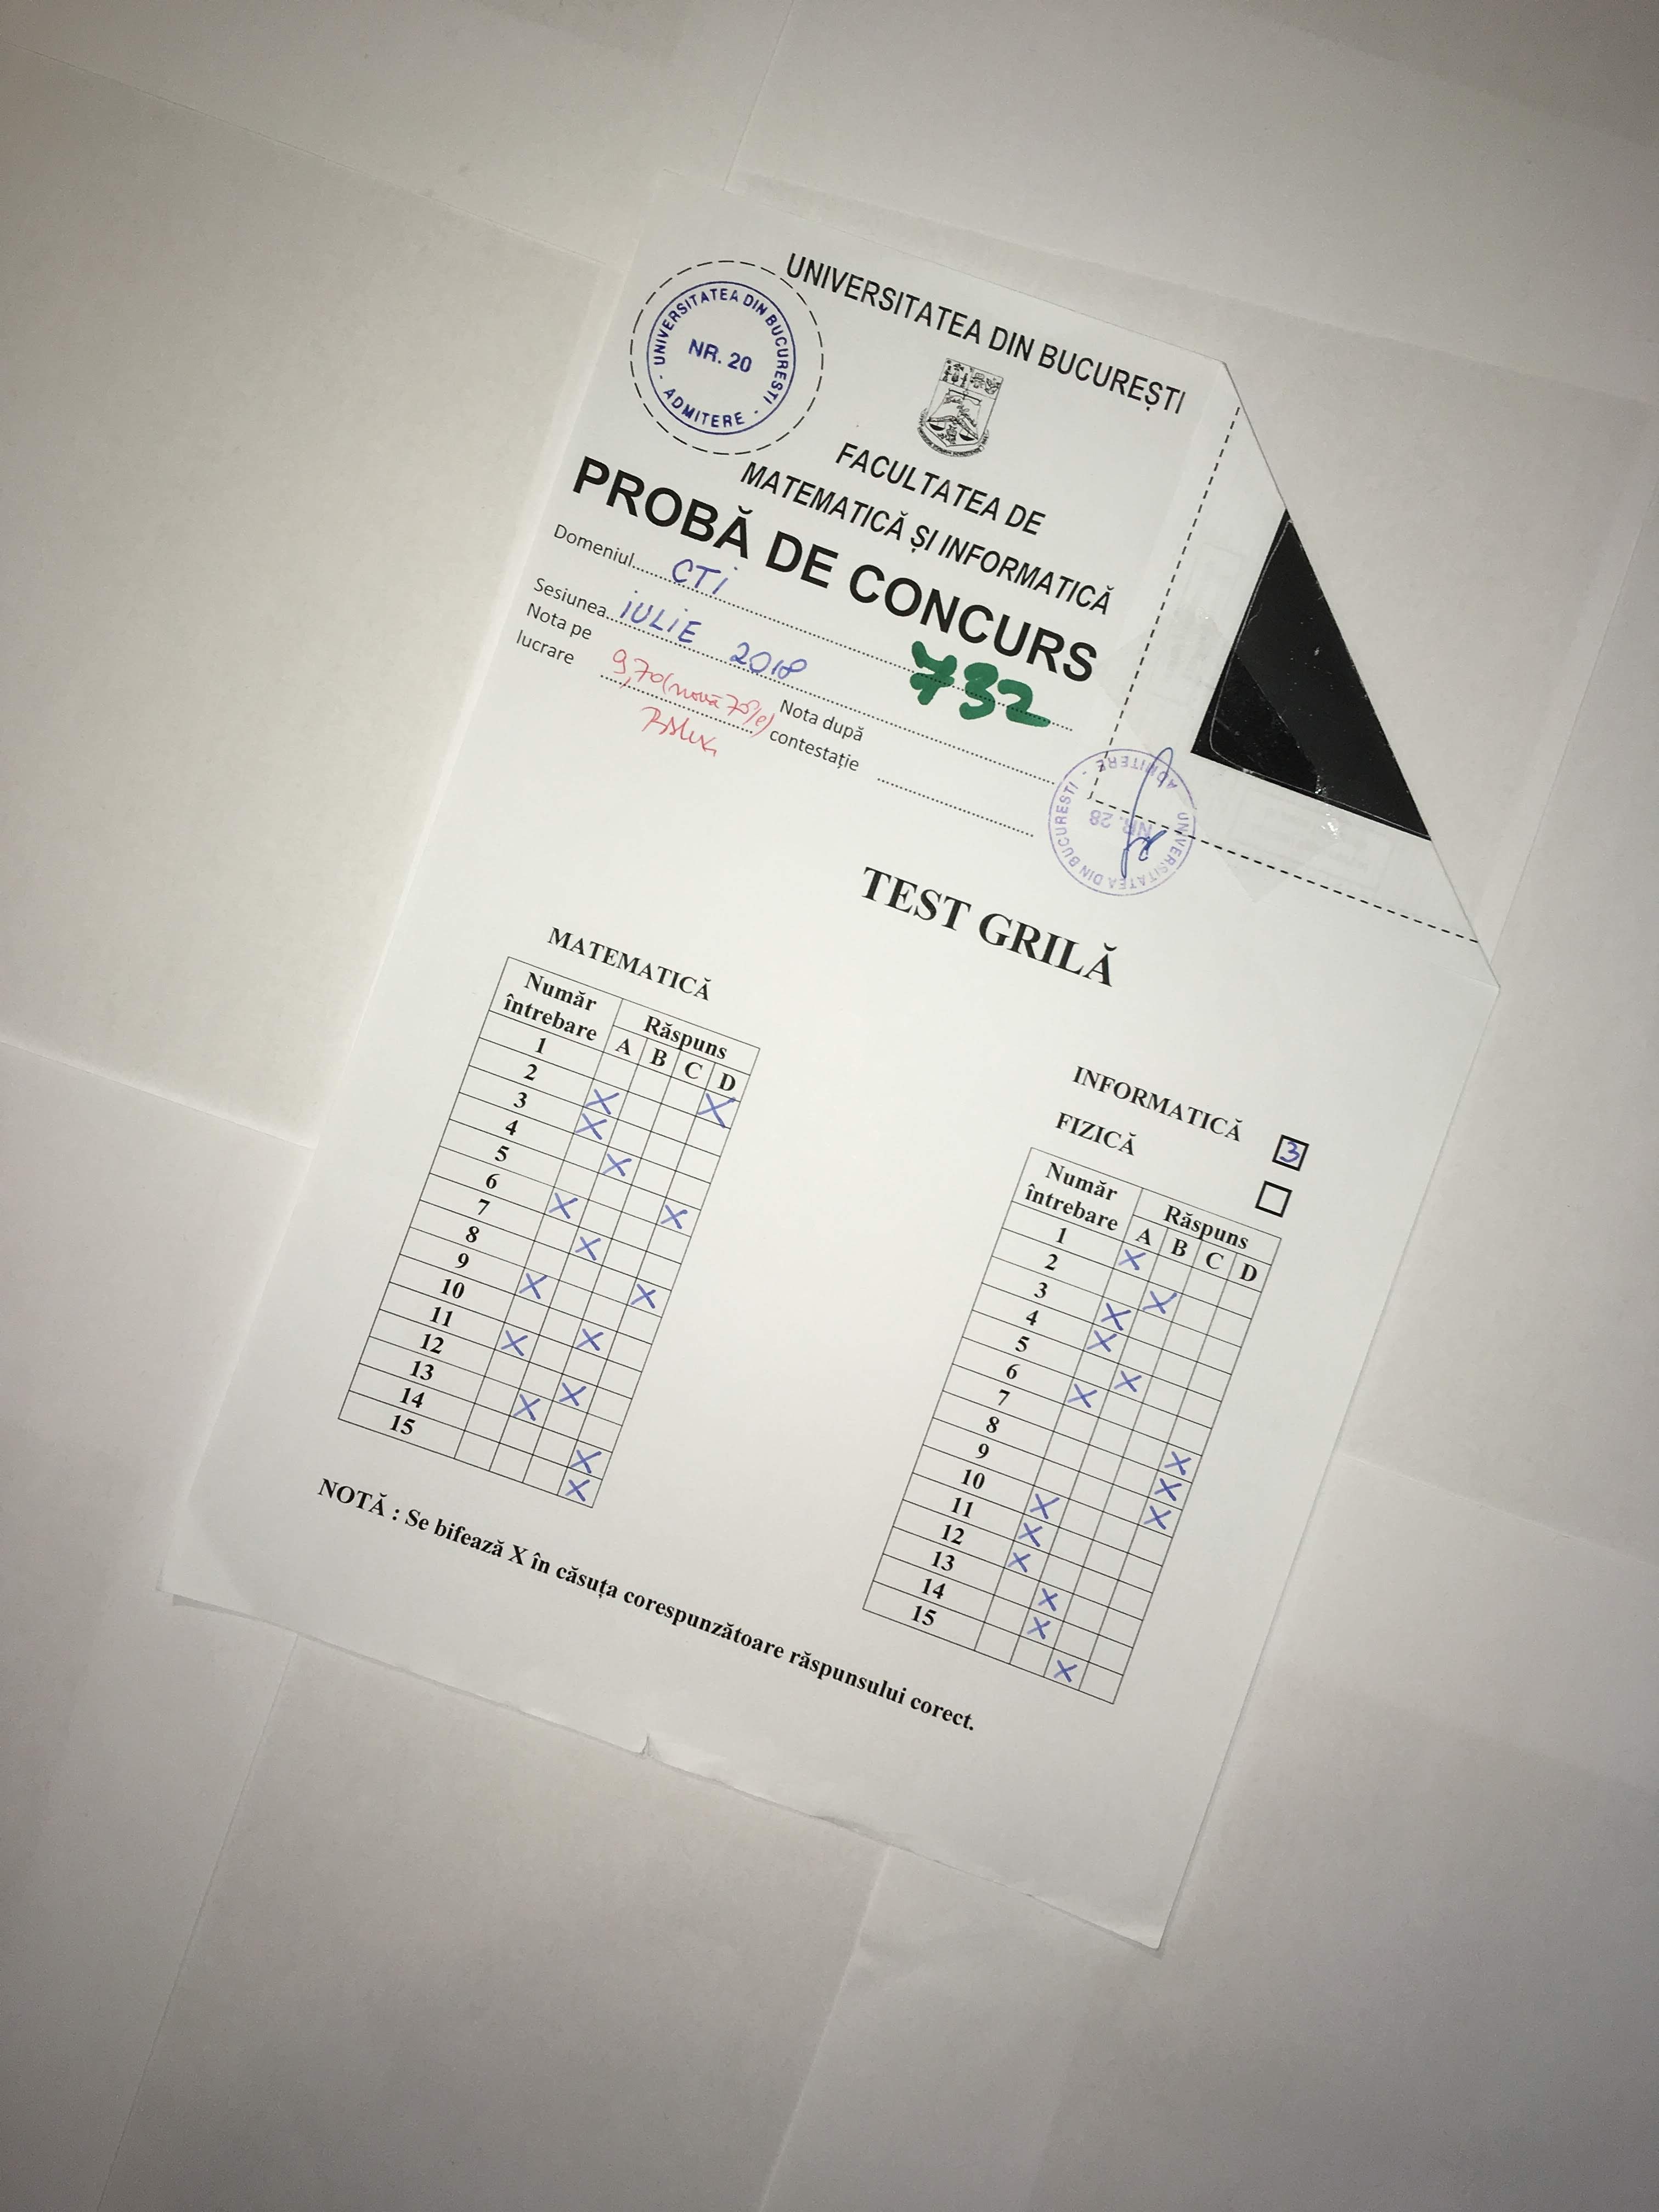 UNIVERSITATEA DIN BUCUREȘTI
UNIVERSITATEA DIN BUCURESTI - ADMITERE -
NR. 20
FACULTATEA DE
MATEMATICĂ ȘI INFORMATICĂ
PROBĂ DE CONCURS
Domeniul CTI
732
Sesiunea IULIE 2018
Nota pe lucrare 9,70 (nouă 70%)
Nota după contestație
UNIVERSITATEA DIN BUCURESTI - ADMITERE -
NR. 28
TEST GRILĂ
MATEMATICĂ
Număr întrebare Răspuns
A B C D
1 X
2 X
3 X
4 X
5 X
6 X
7 X
8 X
9 X
10 X
11 X
12 X
13 X
14 X
15 X
INFORMATICĂ 3
FIZICĂ
Număr întrebare Răspuns
A B C D
1 X
2 X
3 X
4 X
5 X
6 X
7 X
8 X
9 X
10 X
11 X
12 X
13 X
14 X
15 X
NOTĂ : Se bifează X în căsuța corespunzătoare răspunsului corect.